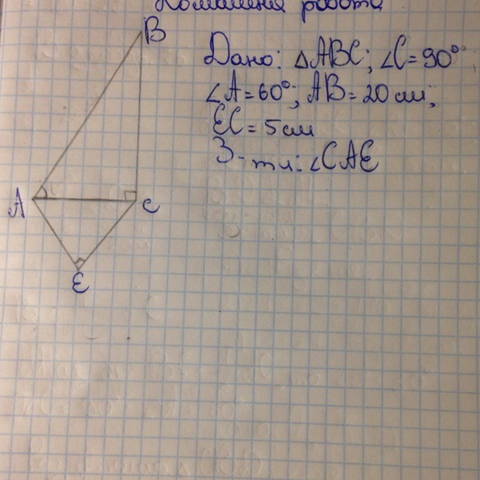 Домашня робота
B
Дано: △ABC; ∠C=90°;
∠A=60°; AB=20 см;
EC=5см
З-ти: ∠CAE
A
C
E